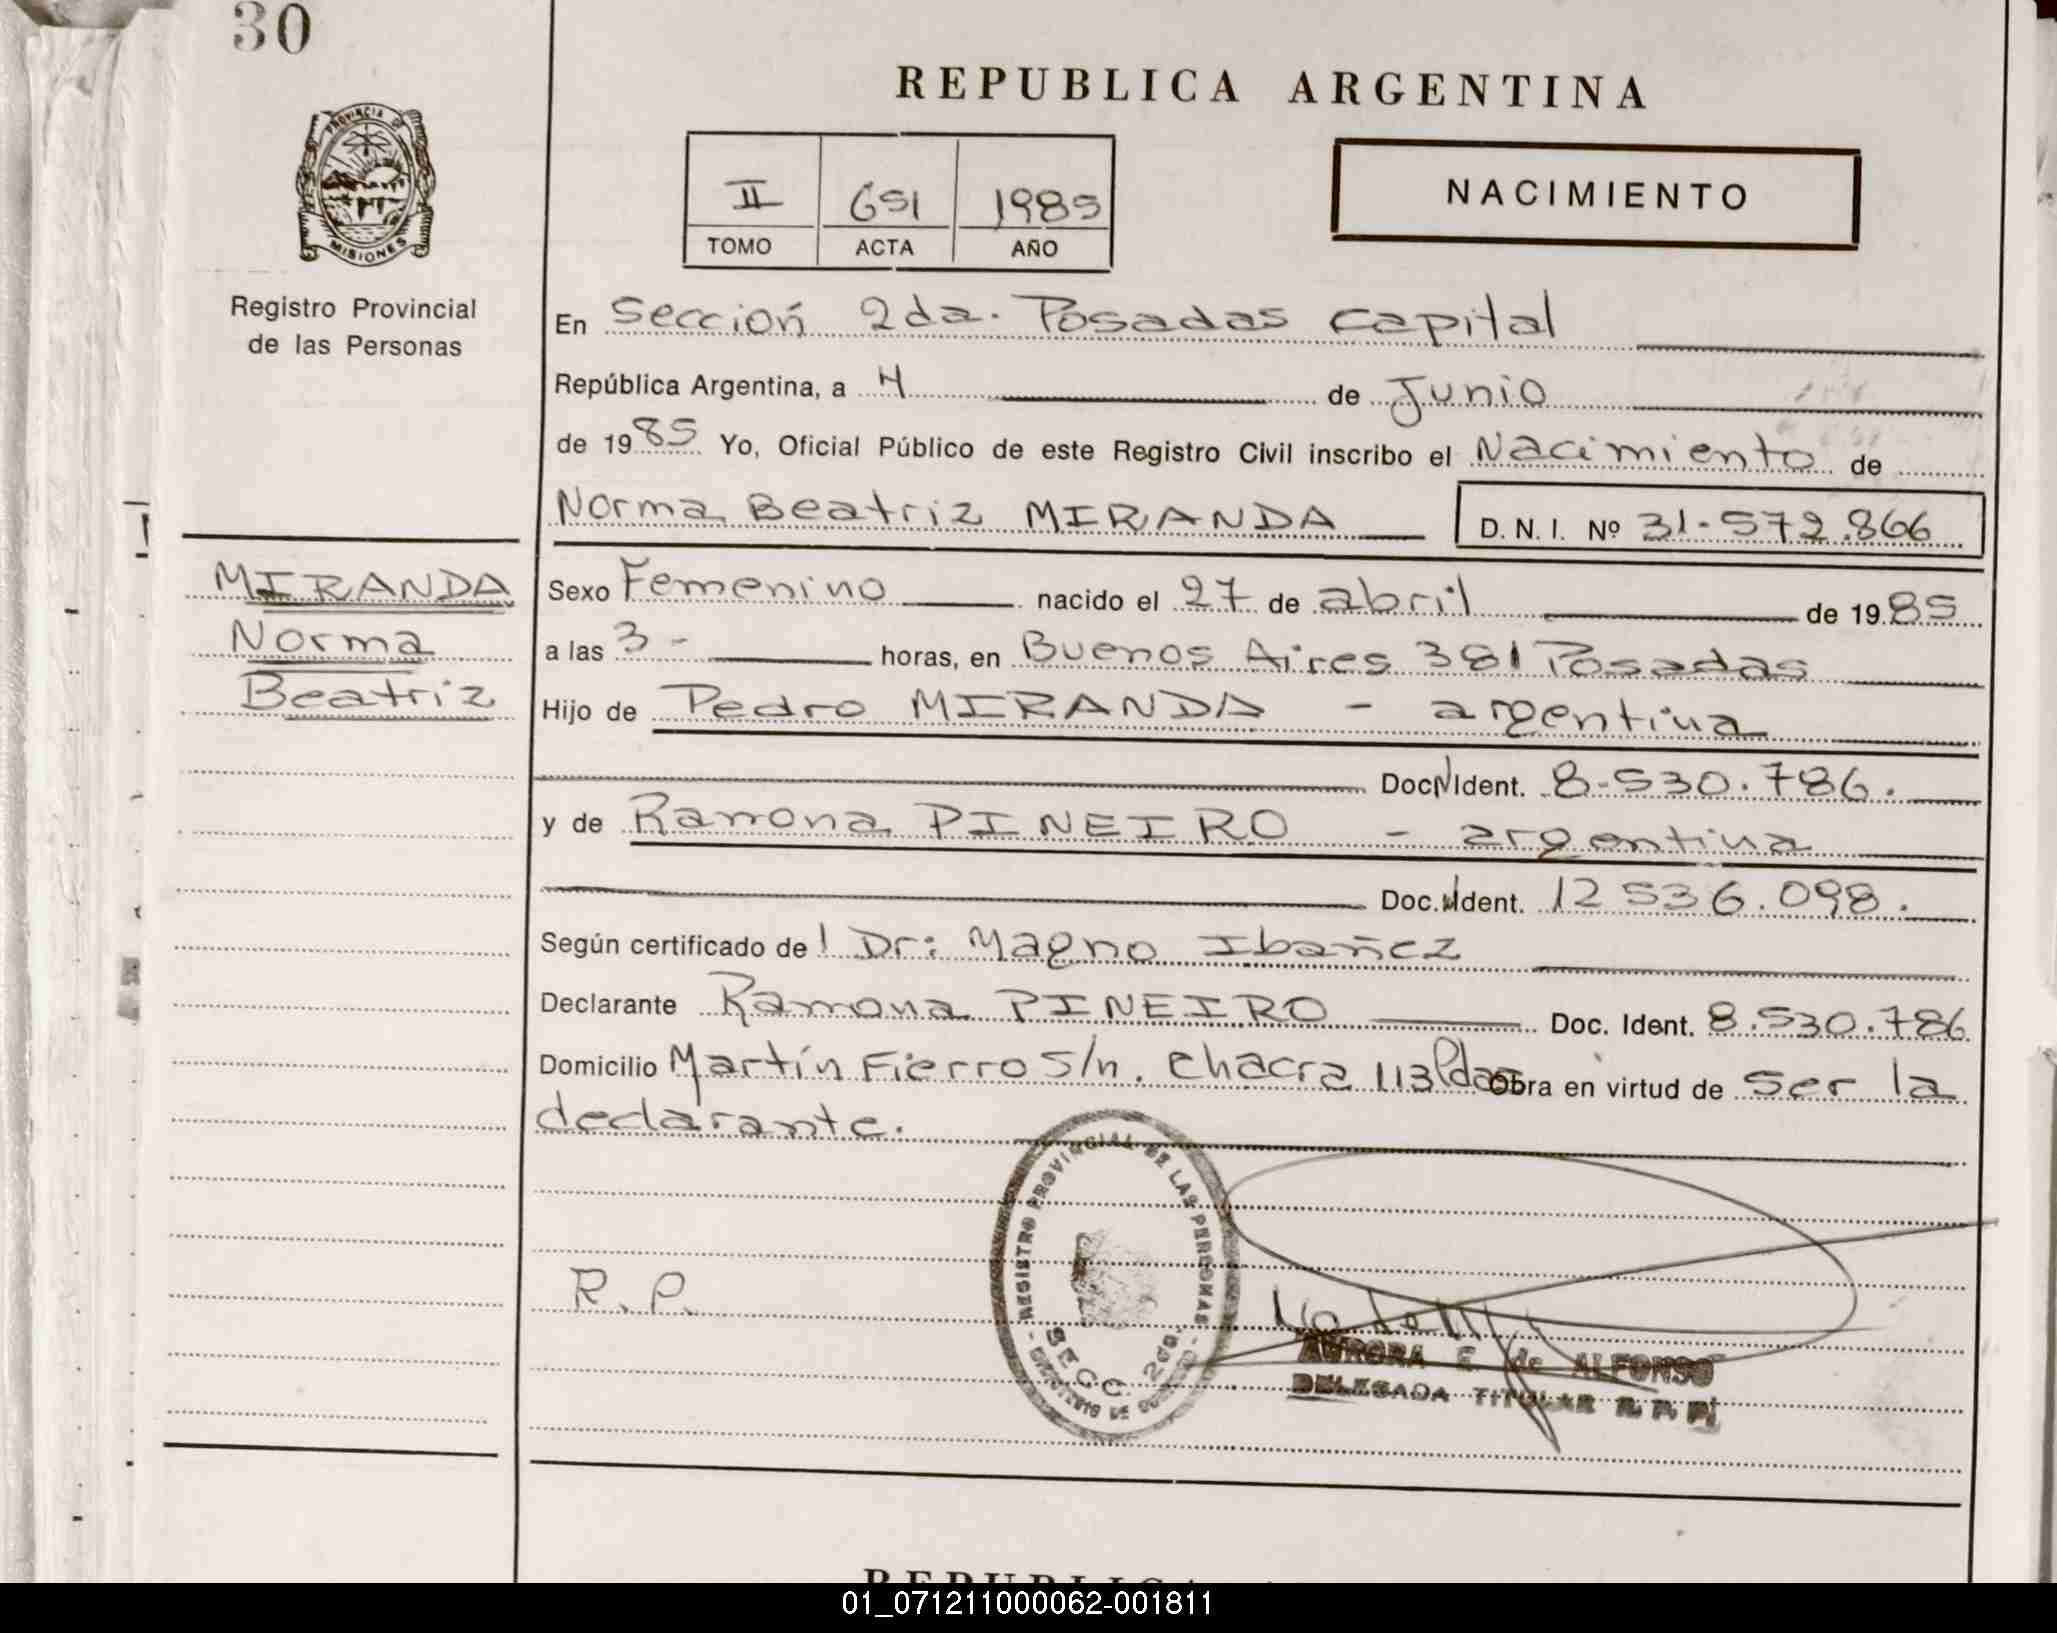 30
REPUBLICA ARGENTINA
PROVINCIA DE
MISIONES
II 651 1985
TOMO ACTA AÑO
NACIMIENTO
Registro Provincial
de las Personas
En Sección 2da. Posadas capital
República Argentina, a 4 de Junio
de 1985 Yo, Oficial Público de este Registro Civil inscribo el Nacimiento de
Norma Beatriz MIRANDA D. N. I. Nº 31.572.866
MIRANDA
Norma
Beatriz
Sexo Femenino nacido el 27 de abril de 1985
a las 3 - horas, en Buenos Aires 381 Posadas
Hijo de Pedro MIRANDA - argentina
Doc. Ident. 8.530.786.
y de Ramona PINEIRO - argentina
Doc. Ident. 12 536.098.
Según certificado de Dr: Magno Ibañez
Declarante Ramona PINEIRO Doc. Ident. 8.530.786
Domicilio Martín Fierro s/n. chacra 113 Pdas Obra en virtud de ser la
declarante.
REGISTRO PROVINCIAL DE LAS PERSONAS
SECC. 2da.
R. P.
AURORA E. de ALFONSO
DELEGADA TITULAR R. P. P.
01_071211000062-001811